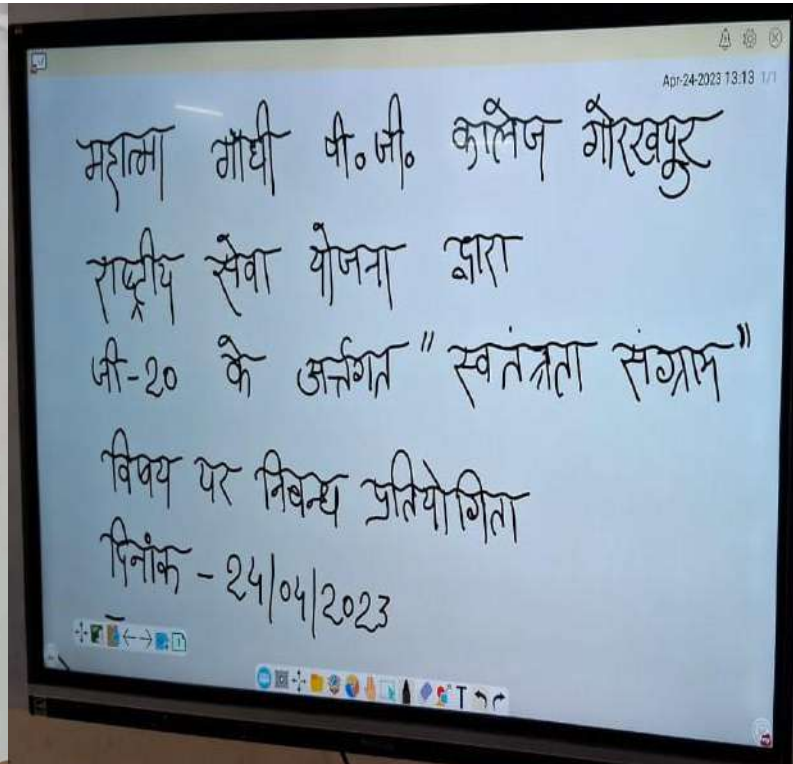 Apr-24-2023 13:13 1/1
महात्मा गाँधी पी.जी. कालेज गोरखपुर
राष्ट्रीय सेवा योजना द्वारा
जी-20 के अर्न्तगत "स्वतंत्रता संग्राम"
विषय पर निबन्ध प्रतियोगिता
दिनांक - 24/04/2023